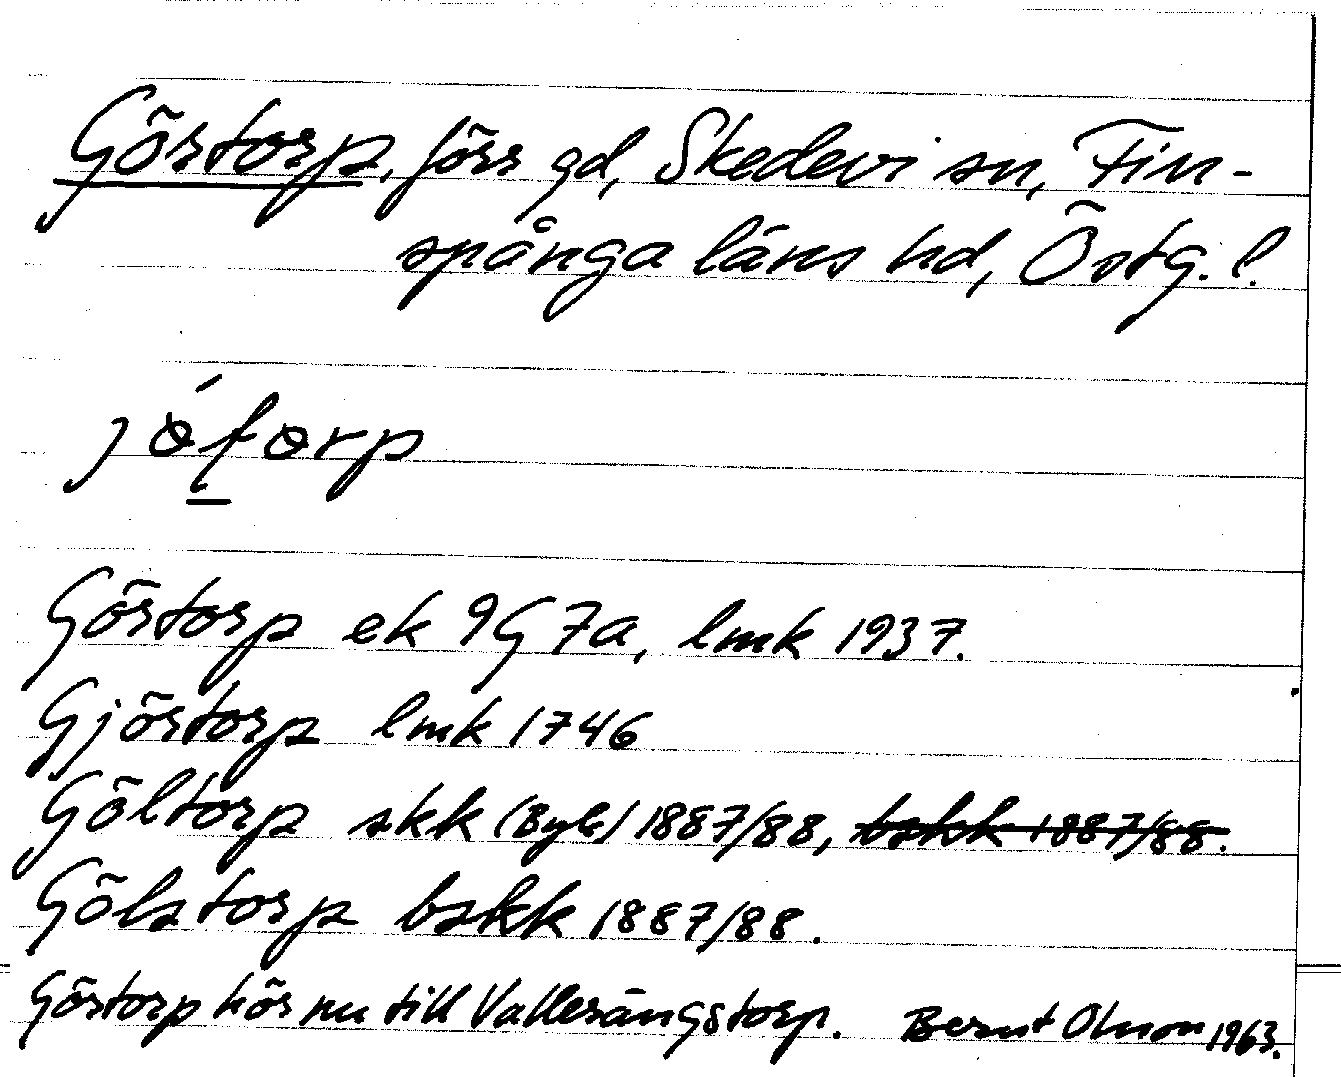 Görstorp, förs gd, Skedevi sn, Fin-
spånga läns hd, Östg. l.
Görstorp ek 9G7a, lmk 1937.
Gjörstorp lmk 1746
Göltorp skk (Bygb) 1887/88, bskk 1887/88.
Gölstorp bskk 1887/88.
Görstorp hör nu till Vallerängstorp. Bernt Olsson 1963.